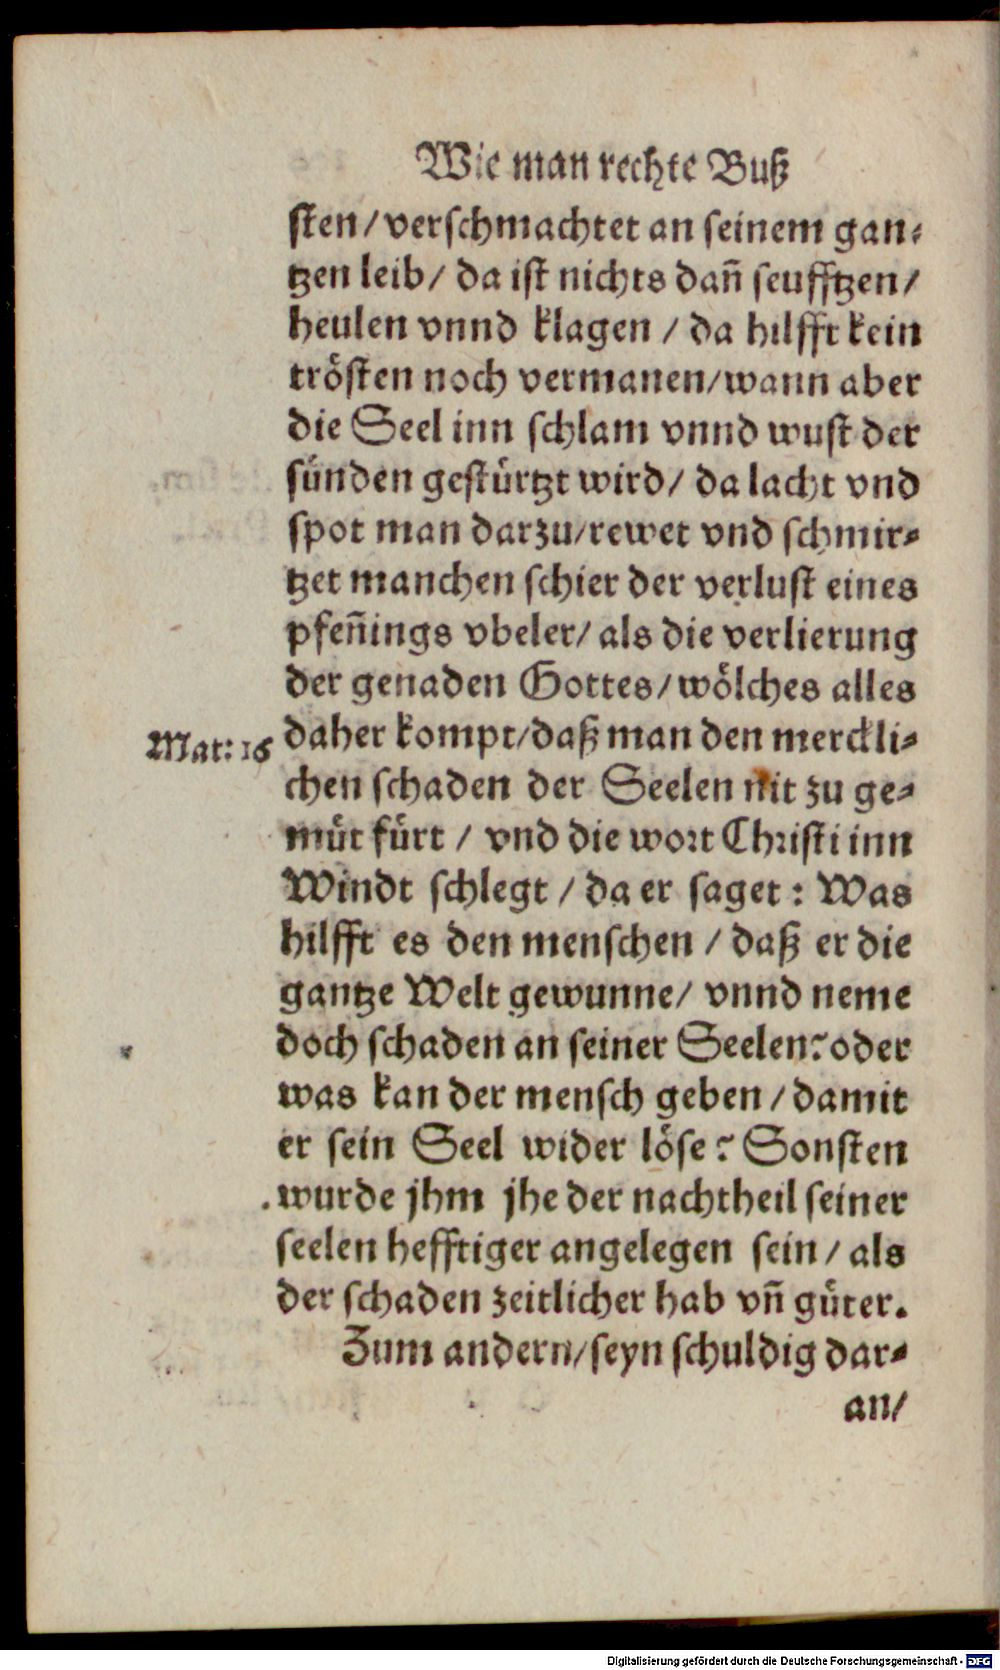 Wie man rechte Buß
sten/ verschmachtet an seinem gan-
tzen leib/ da ist nichts dañ seufftzen/
heulen vnnd klagen / da hilfft kein
trösten noch vermanen/wann aber
die Seel inn schlam vnnd wust der
sünden gestürtzt wird/ da lacht vnd
spot man darzu/rewet vnd schmir-
tzet manchen schier der verlust eines
pfeñings vbeler/ als die verlierung
der genaden Gottes/wölches alles
Mat: 16 daher kompt/daß man den merckli-
chen schaden der Seelen nit zu ge-
müt fürt / vnd die wort Christi inn
Windt schlegt / da er saget : Was
hilfft es den menschen / daß er die
gantze Welt gewunne/ vnnd neme
doch schaden an seiner Seelen? oder
was kan der mensch geben / damit
er sein Seel wider löse? Sonsten
wurde jhm jhe der nachtheil seiner
seelen hefftiger angelegen sein / als
der schaden zeitlicher hab vñ güter.
Zum andern/seyn schuldig dar-
an/
Digitalisierung gefördert durch die Deutsche Forschungsgemeinschaft - DFG